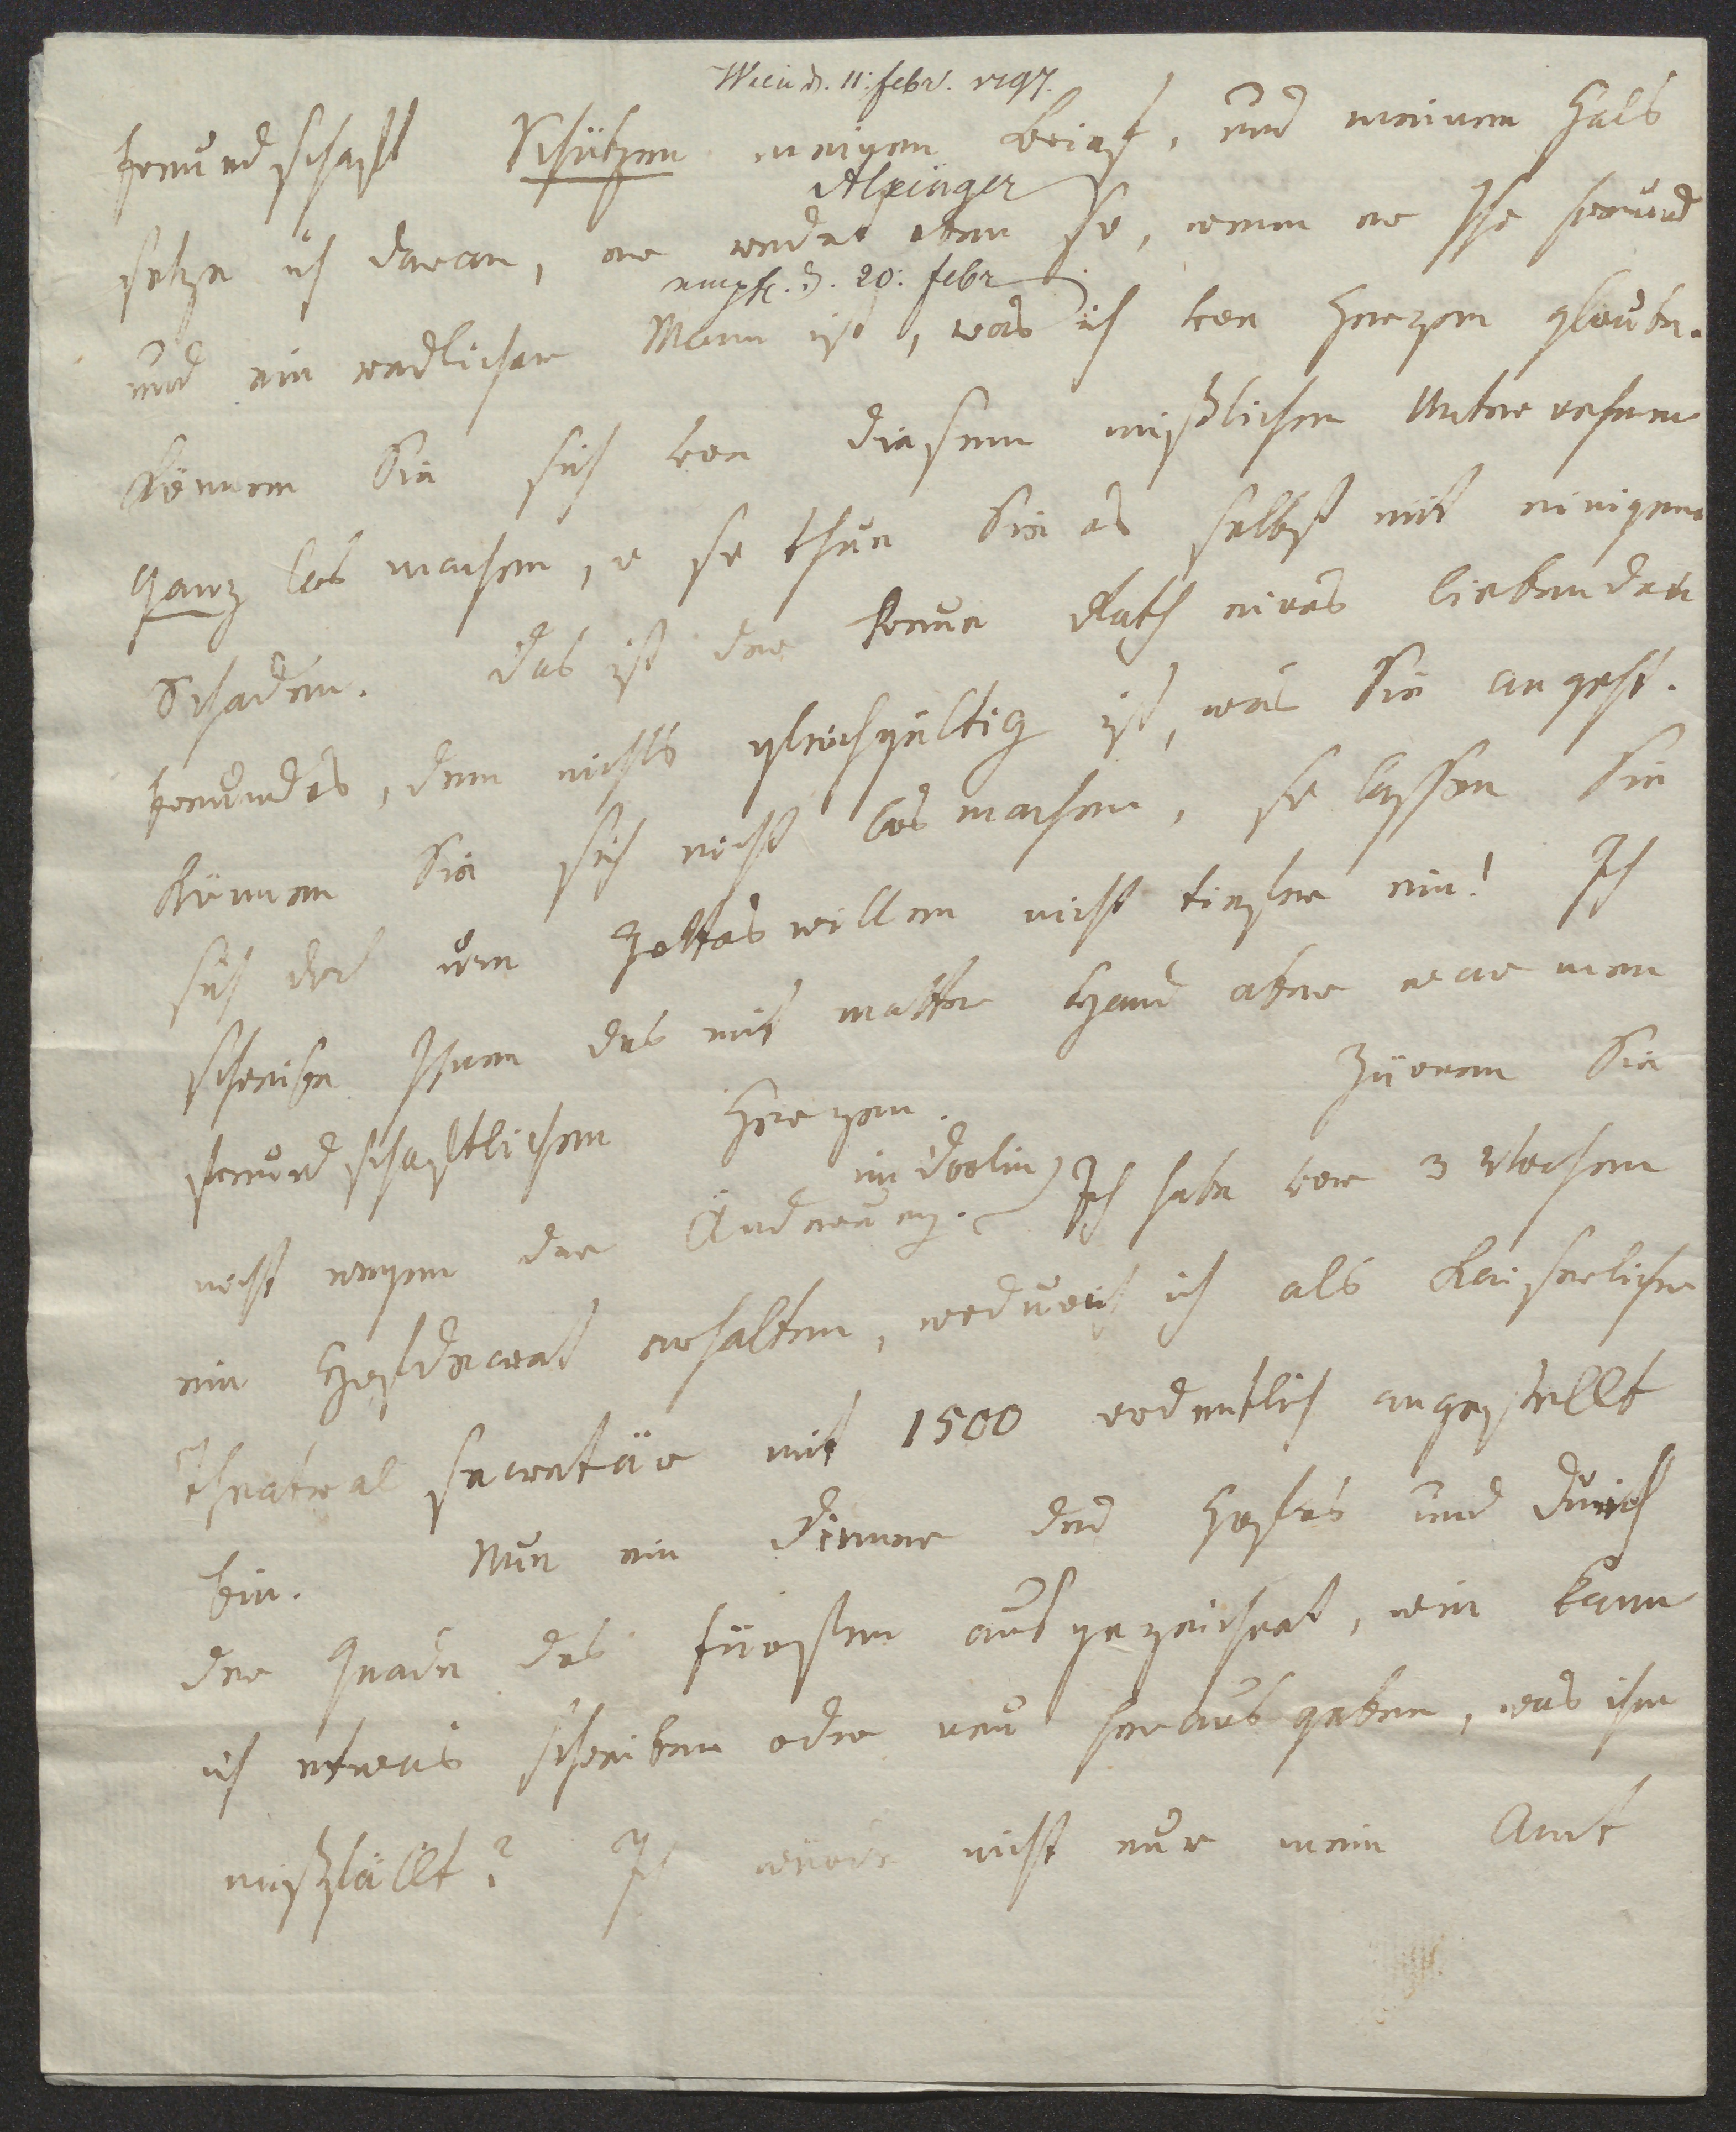 Wien d. 11. febr. 1797.
freundschaft Schützen meinen Brief, und meinen Hals
Alxinger
setze ich daran, er redet eben so, wenn er Ihr freund
empf. d. 20. febr
und ein redlicher Mann ist, was ich von Herzen glaube.
Können Sie sich von diesem mißlichen Unternehmen
ganz los machen, o so thun Sie es selbst mit einigem
Schaden. Das ist der treue Rath eines liebenden
freundes, dem nichts gleichgültig ist, was Sie angeht.
Können Sie sich nicht los machen, so lassen Sie
sich doch um Gottes willen nicht tiefer ein! Ich
schreibe Ihnen das mit matter Hand aber warmen
freundschaftlichen Herzen. Zürnen Sie
im Doolin
nicht wegen der Änderung. Ich habe vor 3 Wochen
ein Hofdecret erhalten, wodurch ich als Kaiserlicher
Theatral secretär mit 1500 ordentlich angestellt
bin. Nun ein Diener des Hofes und durch
der Gnade des Fürsten ausgezeichnet, wie kann
ich etwas schreiben oder neu herausgeben, was ihm
mißfällt? Ich würde nicht nur mein Amt